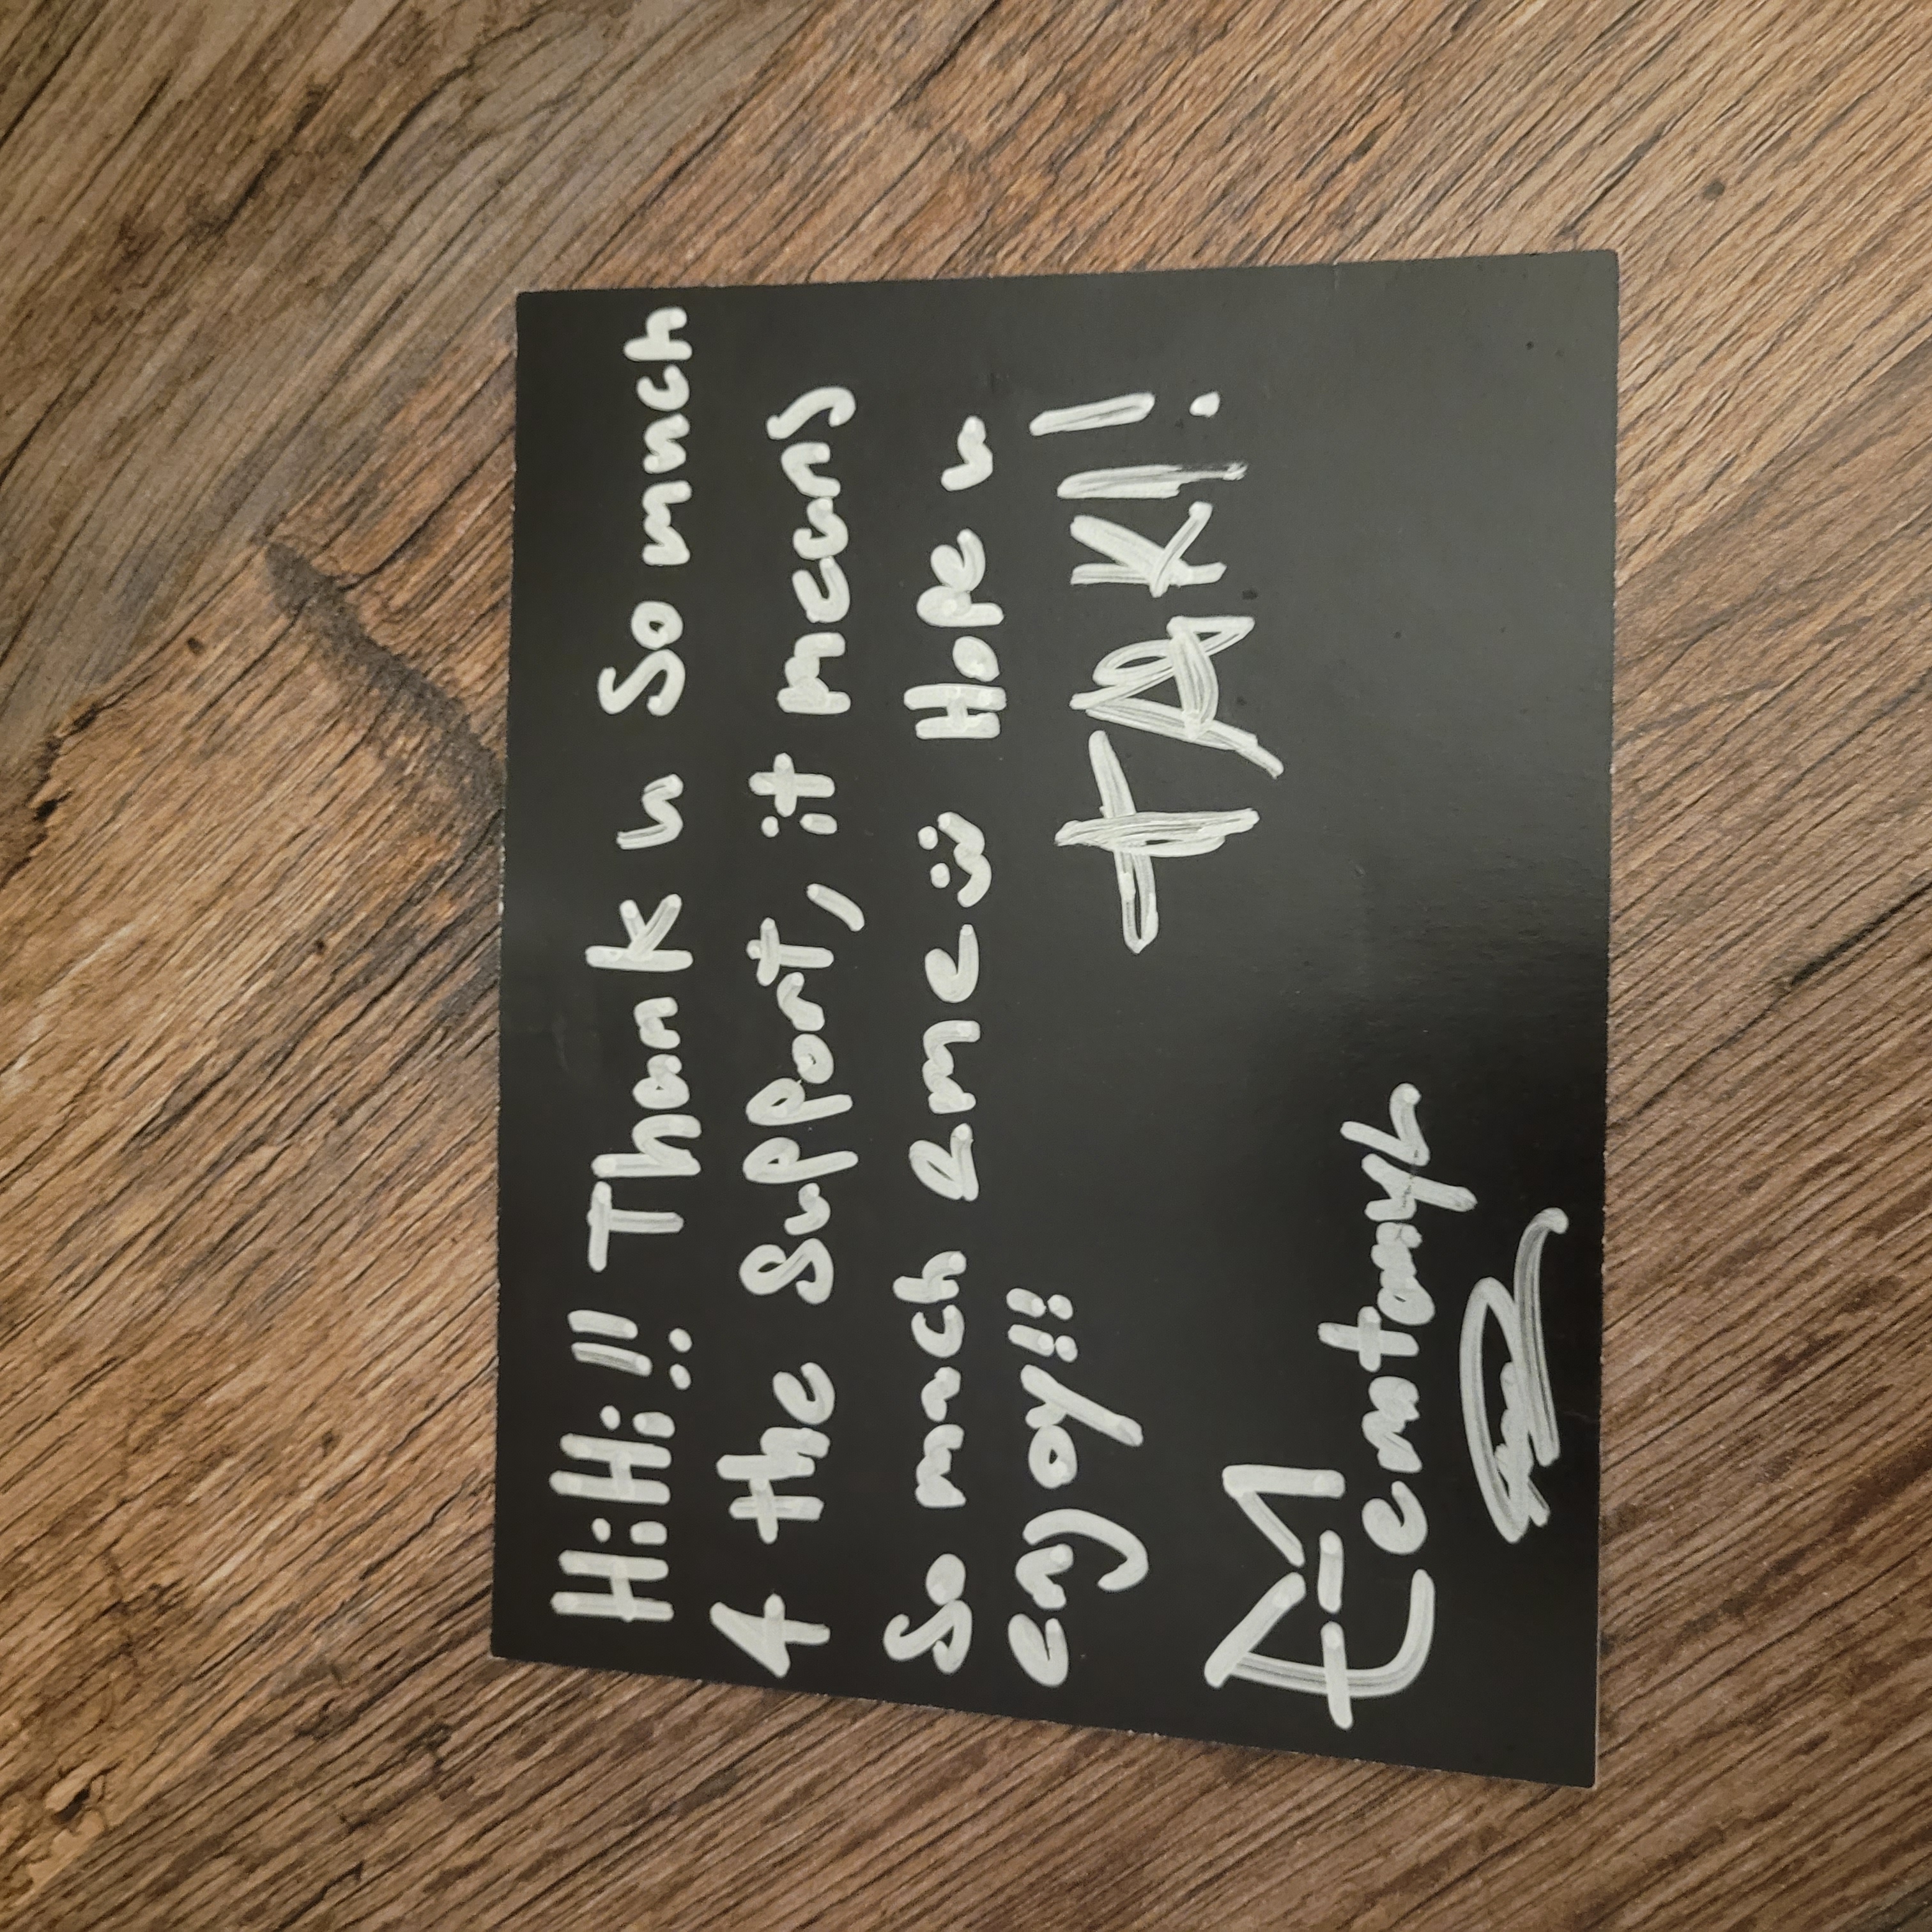 HiHi!! Thank u So much
4 the Support, it means
So much 2 me :) Hope u
enjoy!!
TAKI!